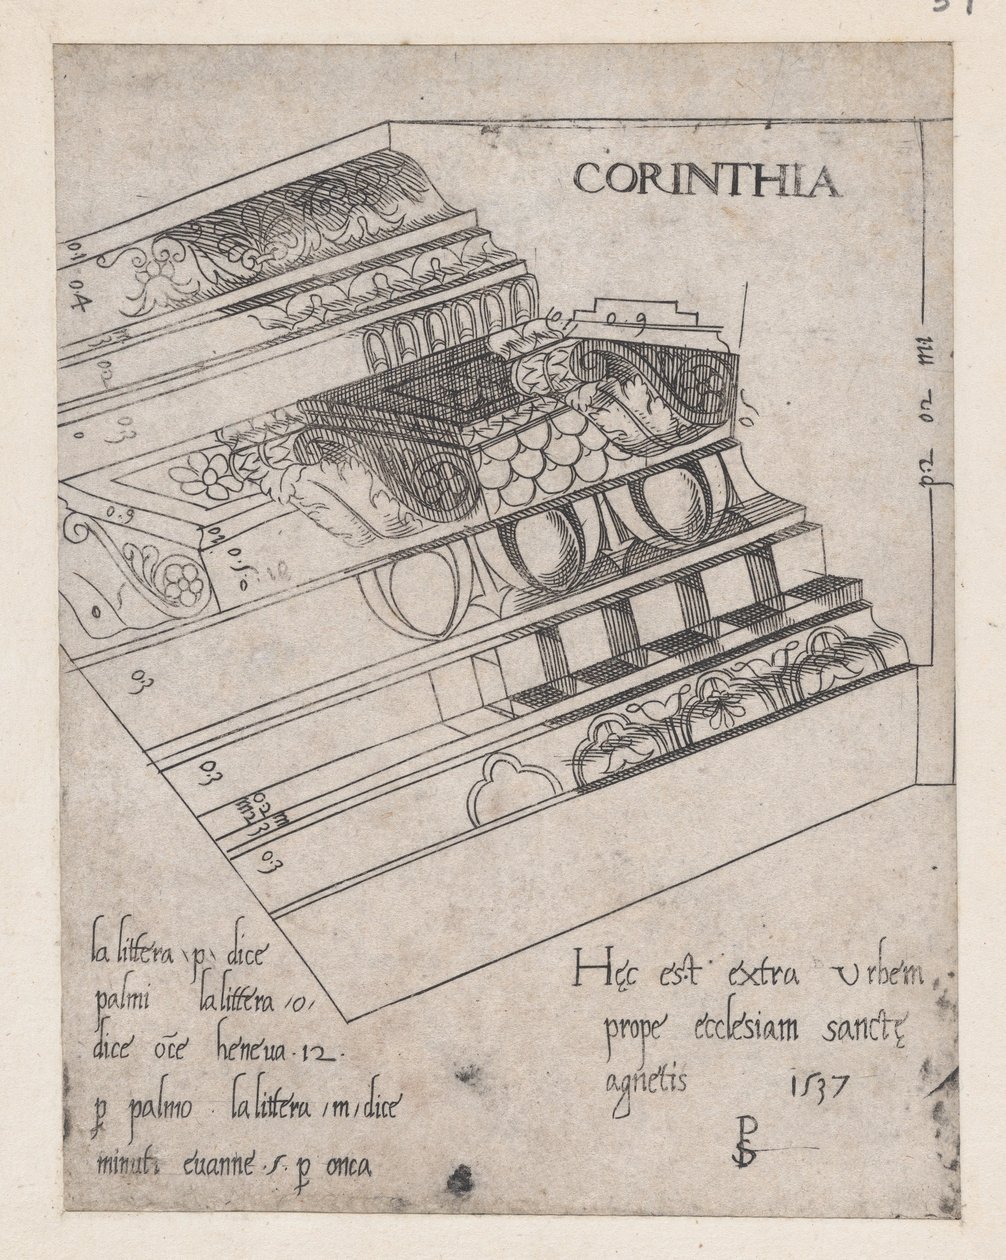 CORINTHIA
0.1 0.4
0.9
0.9
p:2 02 m1
0:3
0:3
0:2
0:3
la littera p dice
palmi la littera /o/
dice oc̄e heneua .12.
ꝑ palmo . la littera /m/ dice
minuti euanne .5. ꝑ onca
Hęc est extra Urbem
prope ecclesiam sanctę
agnetis 1537
PS